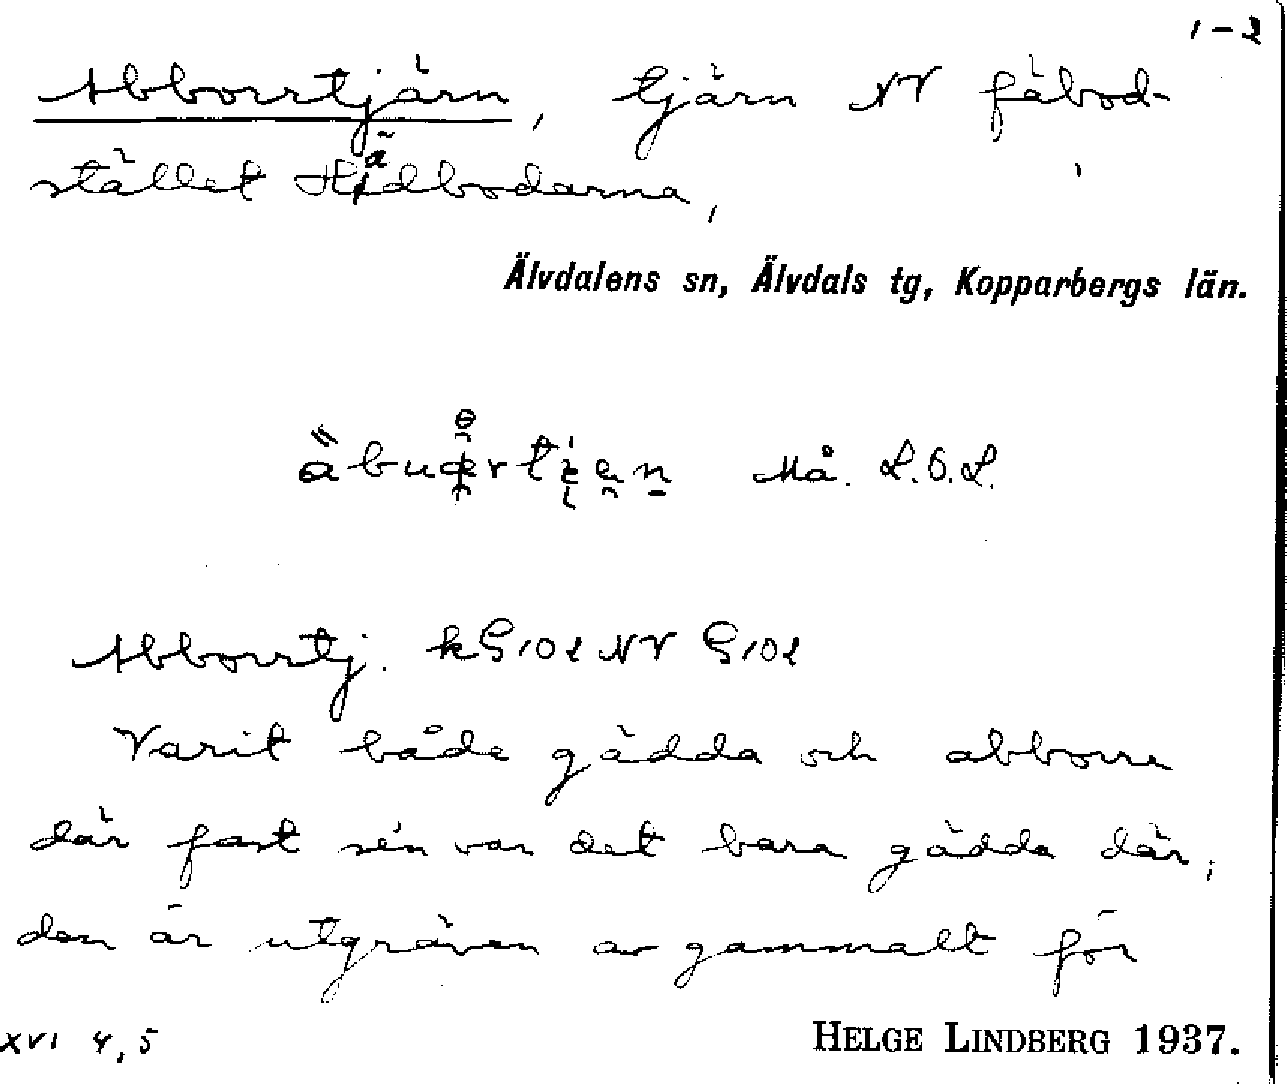 1-2
Abborrtjärn, tjärn NV fäbod-
stället Hädbodarna,
Älvdalens sn, Älvdals tg, Kopparbergs län.
Må. L.Ö.L.
Abborrtj. k G102 NV G102
Varit både gädda och abborre
där fast sén var det bara gädda där;
den är utgräven av gammalt för
XVI 4,5
HELGE LINDBERG 1937.